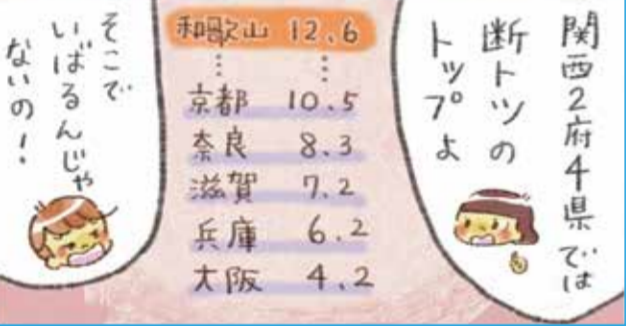 関西2府4県では
断トツの
トップよ
和歌山 12.6
⋮ ⋮
京都 10.5
奈良 8.3
滋賀 7.2
兵庫 6.2
大阪 4.2
そこで
いばるんじゃ
ないの!